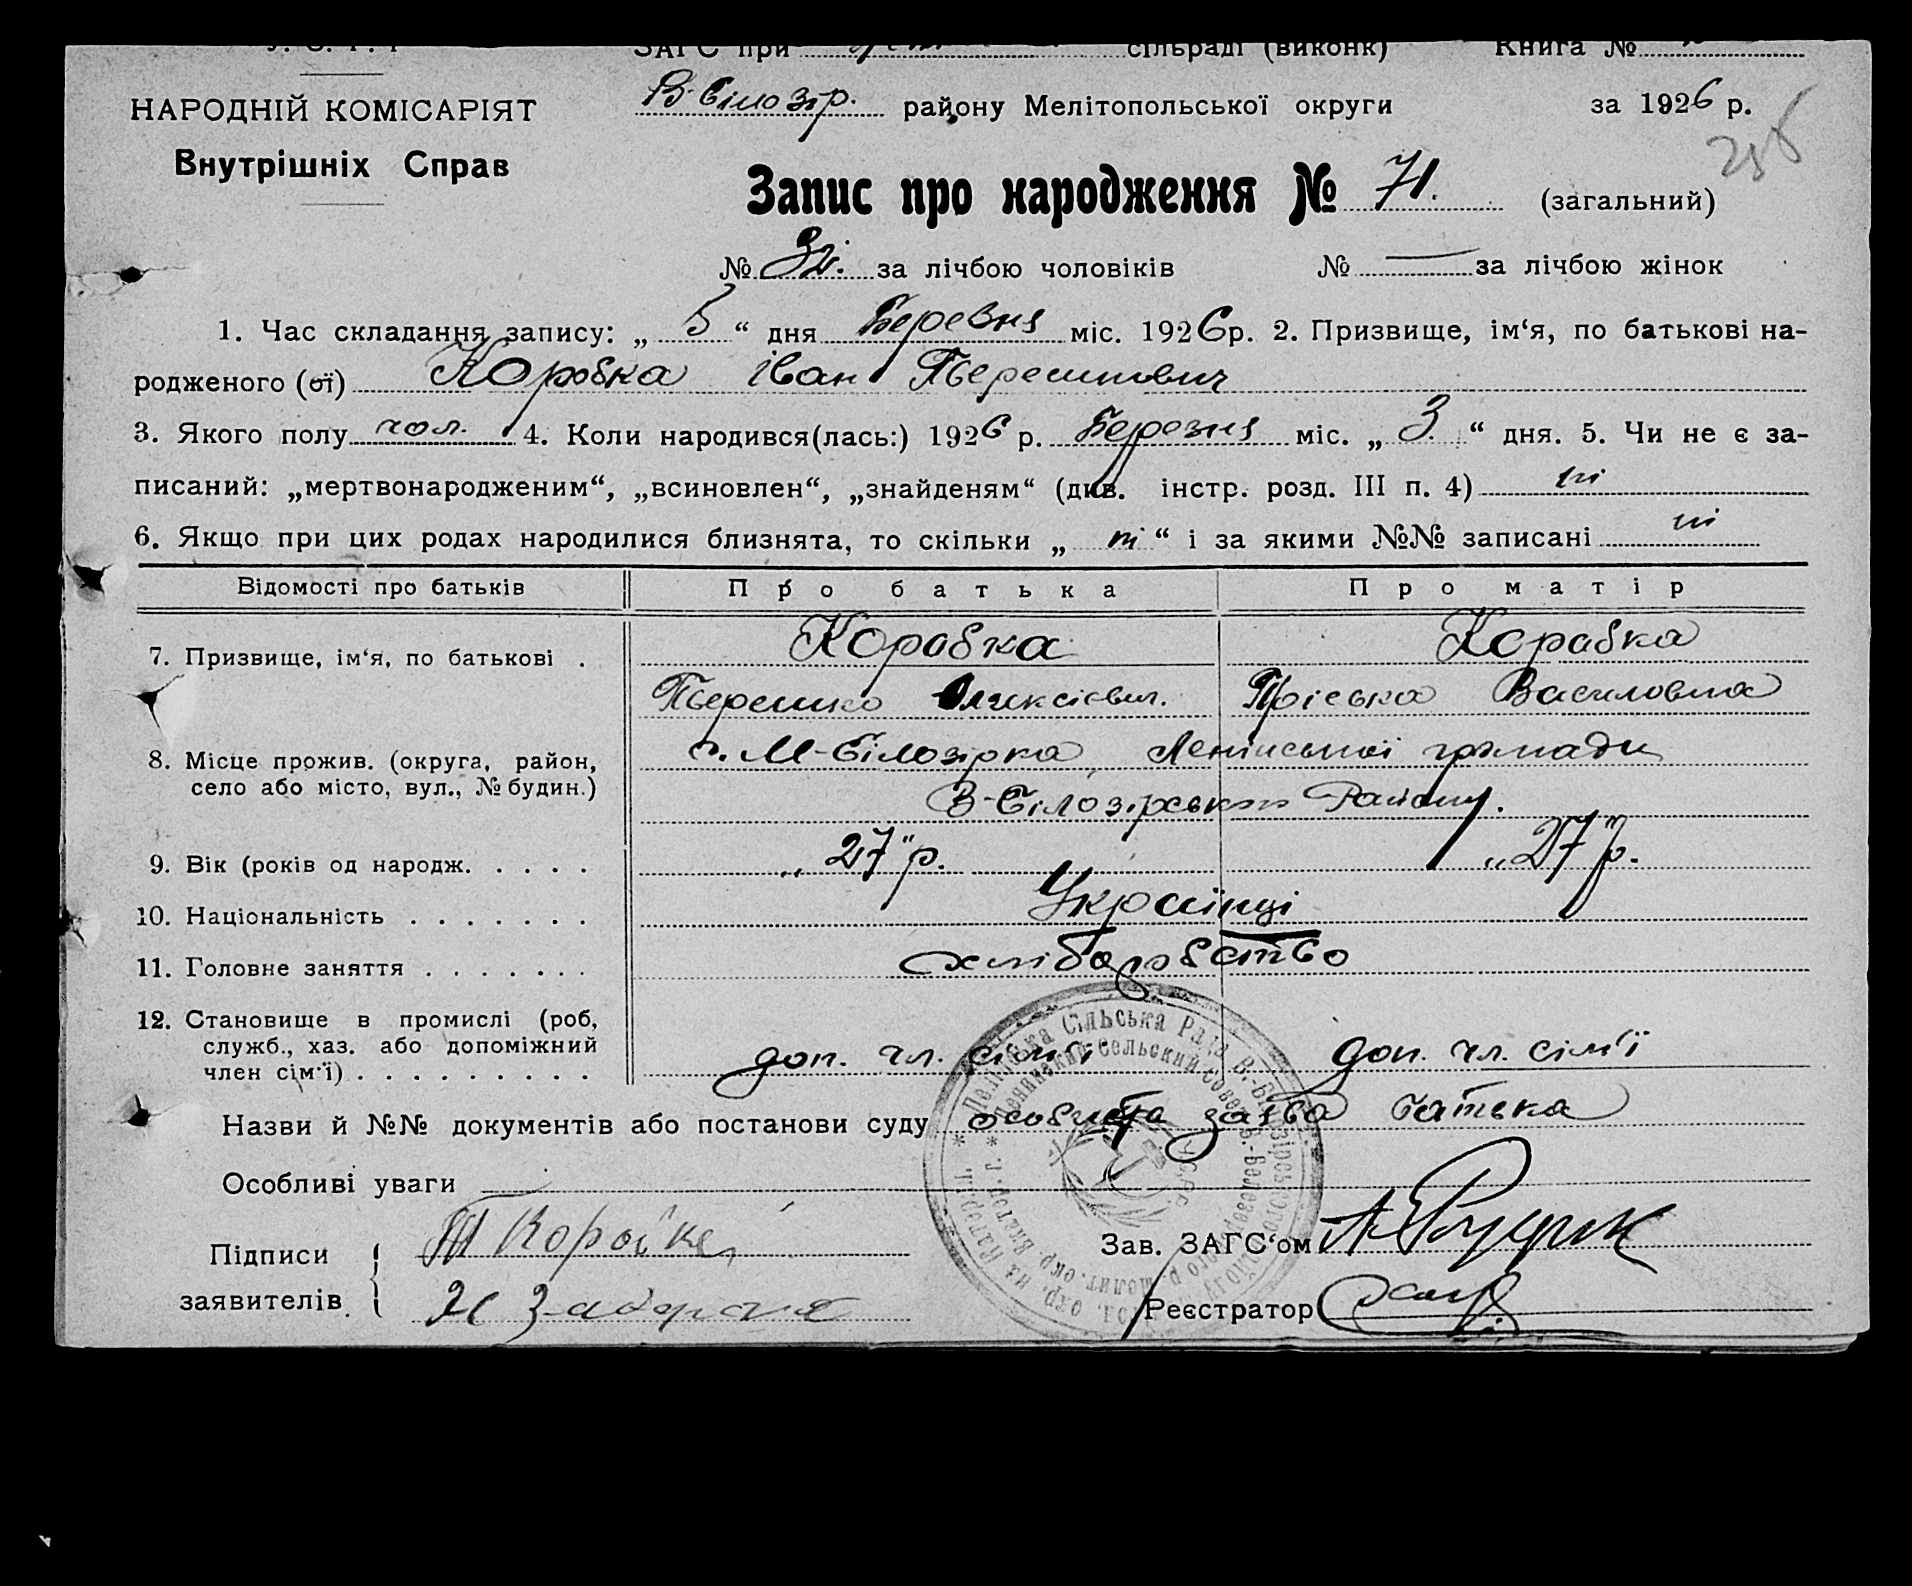 У. С. Р. Р
ЗАГС при сільраді (виконк) Книга №
НАРОДНІЙ КОМІСАРІЯТ
В-Білозір. району Мелітопольської округи за 1926 р.
Внутрішніх Справ
Запис про народження № 71. (загальний)
№ за лічбою чоловіків № — за лічбою жінок
1. Час складання запису: „ 5 “ дня Березня міс. 1926 р. 2. Призвище, ім‘я, по батькові на-
родженого (ої) Коробка Іван
3. Якого полу чол. 4. Коли народився(лась:) 1926 р. Березня міс. „ 3. “ дня. 5. Чи не є за-
писаний: „мертвонародженим“, „всиновлен“, „знайденям“ (див. інстр. розд. III п. 4) ні
6. Якщо при цих родах народилися близнята, то скільки „ ні “ і за якими №№ записані ні
Відомості про батьків Про батька Про матір
7. Призвище, ім‘я, по батькові . Коробка Коробка
Олексієвич. Пріська Василовна
8. Місце прожив. (округа, район, с. М-Білозірка, Ленінської громади
село або місто, вул., № будин.) В-Білозірського Району.
9. Вік (років од народж. . . . . „27“ р. „27“ р.
10. Національність . . . . . . . Українці
11. Головне заняття . . . . . . . хліборобство
12. Становище в промислі (роб,
служб., хаз. або допоміжний
член сім‘ї) . . . . . . . . . доп. чл. сім‘ї доп. чл. сім‘ї
Назви й №№ документів або постанови суду особиста заява батька
Особливі уваги
Підписи Коробка Зав. ЗАГС‘ом
заявителів Реєстратор